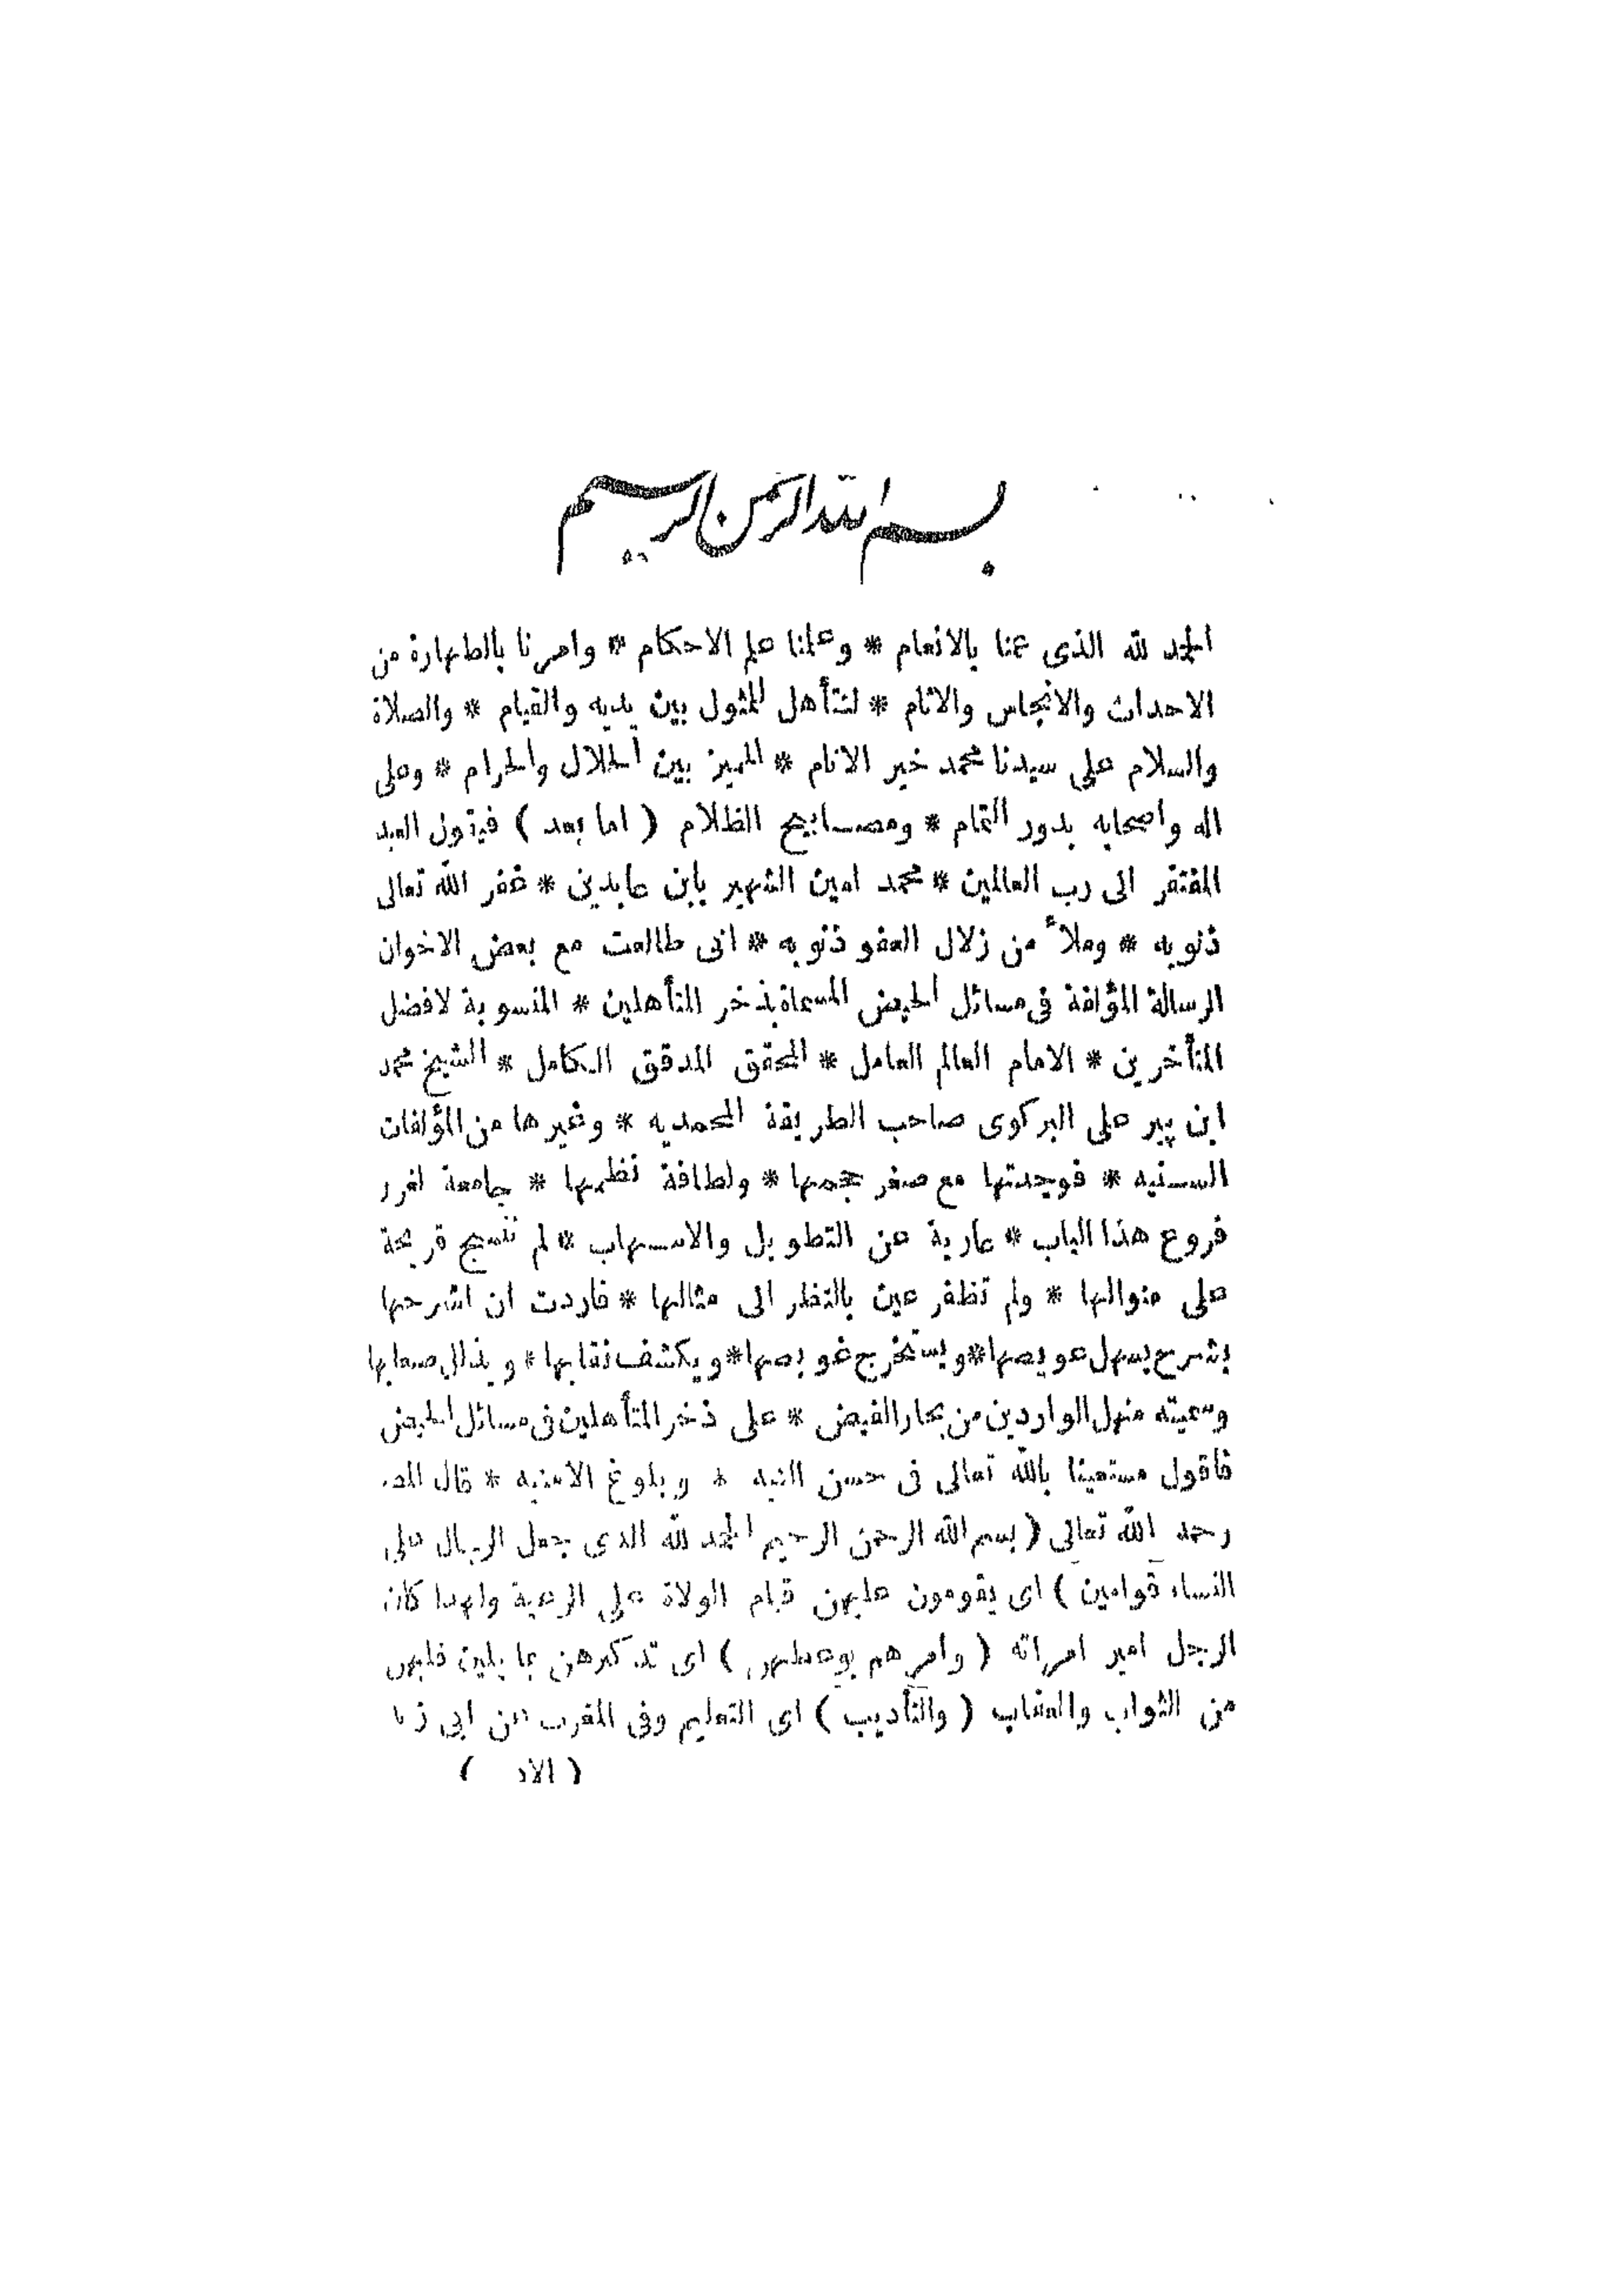 بسم الله الرحمن الرحيم
الحمد لله الذى عمنا بالانعام * وعلمنا علم الاحكام * وامرنا بالطهارة من
الاحداث والانجاس والاثام * لنتأهل للمثول بين يديه والقيام * والصلاة
والسلام على سيدنا محمد خير الانام * المميز بين الحلال والحرام * وعلى
اله واصحابه بدور التمام * ومصابيح الظلام ( اما بعد ) فيقول العبد
المفتقر الى رب العالمين * محمد امين الشهير بابن عابدين * غفر الله تعالى
ذنوبه * وملأ من زلال العفو ذنوبه * انى طالعت مع بعض الاخوان
الرسالة المؤلفة فى مسائل الحيض المسماة بذخر المتأهلين * المنسوبة لافضل
المتأخرين * الامام العالم العامل * المحقق المدقق الكامل * الشيخ محمد
ابن پير على البركوى صاحب الطريقة المحمديه * وغيرها من المؤلفات
السنيه * فوجدتها مع صغر حجمها * ولطافة نظمها * جامعة لغرر
فروع هذا الباب * عارية عن التطويل والاسهاب * لم تنسج قريحة
على منوالها * ولم تظفر عين بالنظر الى مثالها * فاردت ان اشرحها
بشرح يسهل عويصها * ويستخرج غويصها * ويكشف نقابها * ويذلل صعابها
وسميته منهل الواردين من بحار الفيض * على ذخر المتأهلين فى مسائل الحيض
فاقول مستعينا بالله تعالى فى حسن النيه * وبلوغ الامنيه * قال المص
رحمه الله تعالى ( بسم الله الرحمن الرحيم الحمد لله الذى جعل الرجال على
النساء قوامين ) اى يقومون عليهن قيام الولاة على الرعية ولهذا كان
الرجل امير امرأته ( وامرهم بوعظهن ) اى تذكيرهن بما يلين قلبهن
من الثواب والعقاب ( والتأديب ) اى التعليم وفى المغرب عن ابى